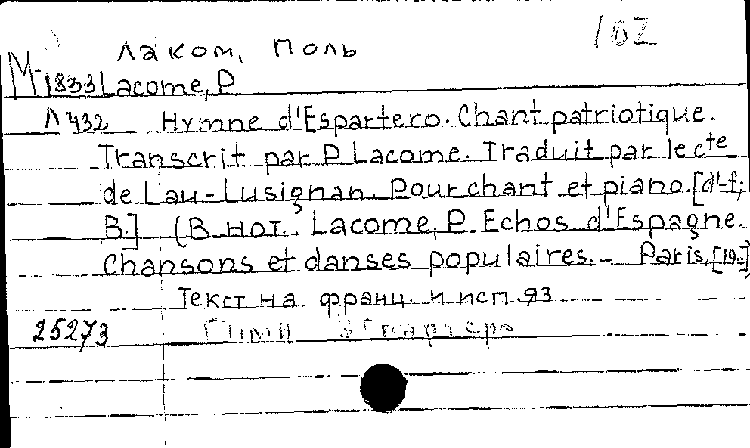 Лаком, Поль 102
М-1833 Lacome, P.
Л 432 Hymne d'Espartero. Chant patriotique.
Transcrit par P. Lacome. Traduit par le cte
de Lau-Lusignan. Pour chant et piano. [d'-f;
B.] (В нот.: Lacome, P. Echos d'Espagne.
Chansons et danses populaires. - Paris, [19..]
Текст на франц. и исп. яз
25273 Гимн Эспартеро